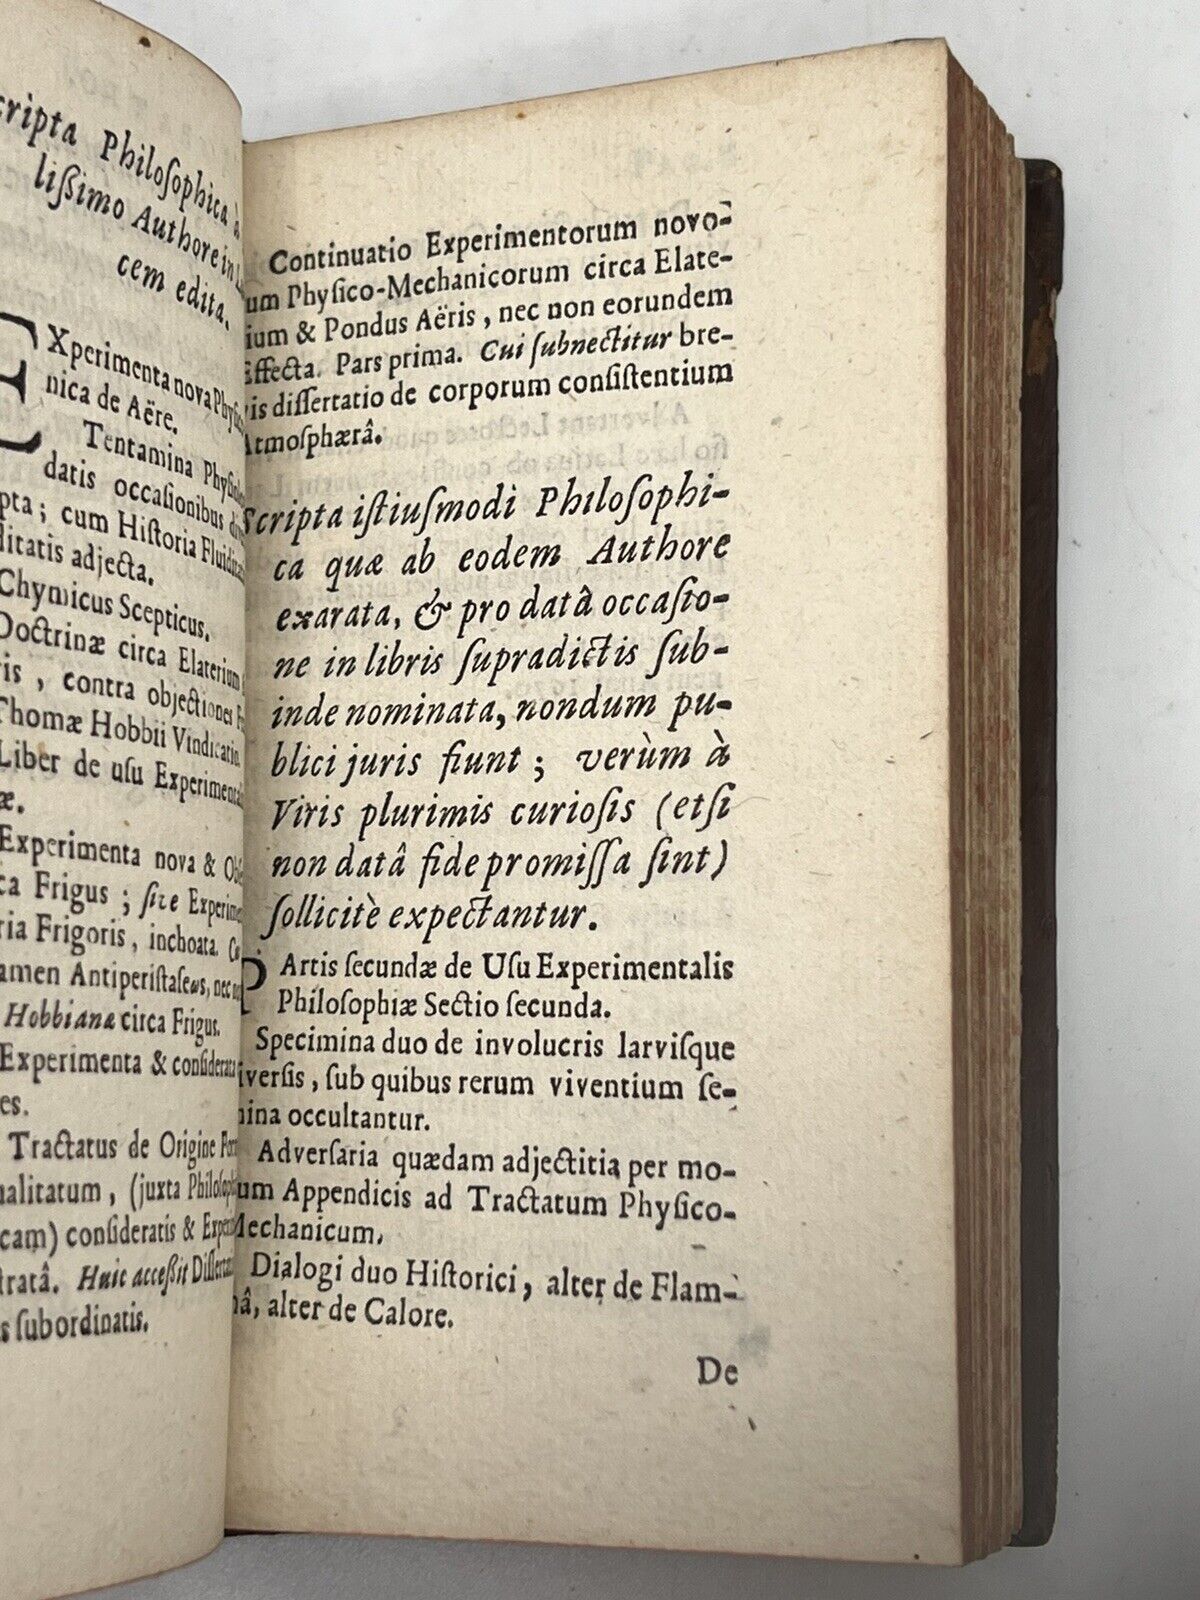 Philoſophica à
liſſimo Authore in
cem edita.
EXperimenta nova
nica de Aëre.
Tentamina
datis occaſionibus
cum Hiſtoria
adjecta.
Chymicus Scepticus.
Doctrinæ circa Elaterium
contra objectiones
Thomæ Hobbii
Liber de uſu
æ.
Experimenta nova &
Frigus ; ſive
Frigoris, inchoata.
Antiperiſtaſeωs, nec
Hobbianæ circa Frigus.
Experimenta &
es.
Tractatus de Origine
(juxta
conſideratis &
Huic acceſſit
ſubordinatis.
Continuatio Experimentorum novo-
um Phyſico-Mechanicorum circa Elate-
ium & Pondus Aëris, nec non eorundem
Effecta. Pars prima. Cui ſubnectitur bre-
is diſſertatio de corporum conſiſtentium
Atmoſphærâ.
Scripta iſtiuſmodi Philoſophi-
ca quæ ab eodem Authore
exarata, & pro datâ occaſio-
ne in libris ſupradictis ſub-
inde nominata, nondum pu-
blici juris fiunt ; verùm à
Viris plurimis curioſis (etſi
non datâ fide promiſſa ſint)
ſollicitè expectantur.
PArtis ſecundæ de Uſu Experimentalis
Philoſophiæ Sectio ſecunda.
Specimina duo de involucris larviſque
iverſis, ſub quibus rerum viventium ſe-
mina occultantur.
Adverſaria quædam adjectitia per mo-
um Appendicis ad Tractatum Phyſico-
Mechanicum.
Dialogi duo Hiſtorici, alter de Flam-
mâ, alter de Calore.
De